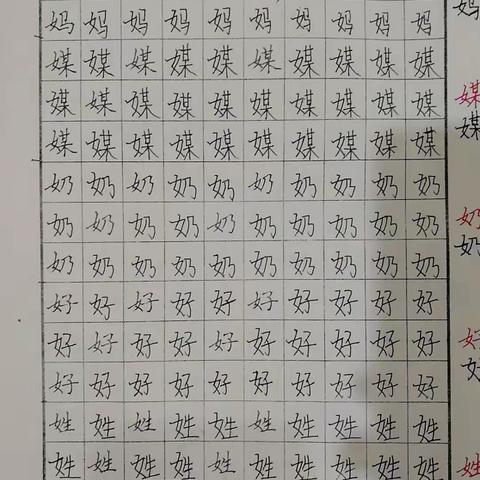 妈妈妈妈妈妈妈妈妈妈 妈
媒媒媒媒媒媒媒媒媒媒
媒媒媒媒媒媒媒媒媒媒 媒
媒媒媒媒媒媒媒媒媒媒 媒
奶奶奶奶奶奶奶奶奶奶
奶奶奶奶奶奶奶奶奶奶 奶
奶奶奶奶奶奶奶奶奶奶 奶
好好好好好好好好好好
好好好好好好好好好好 好
好好好好好好好好好好 好
姓姓姓姓姓姓姓姓姓姓
姓姓姓姓姓姓姓姓姓姓 姓